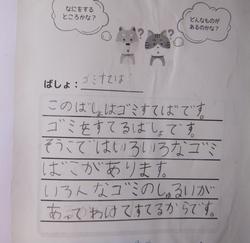 なにをする
ところかな？
どんなものが
あるのかな？
ばしょ：ゴミすてば
このばしょはゴミすてばです。
ゴミをすてるばしょです。
そうこではいろいろなゴミ
ばこがあります。
いろんなゴミのしゅるいが
あってわけてすてるからです。